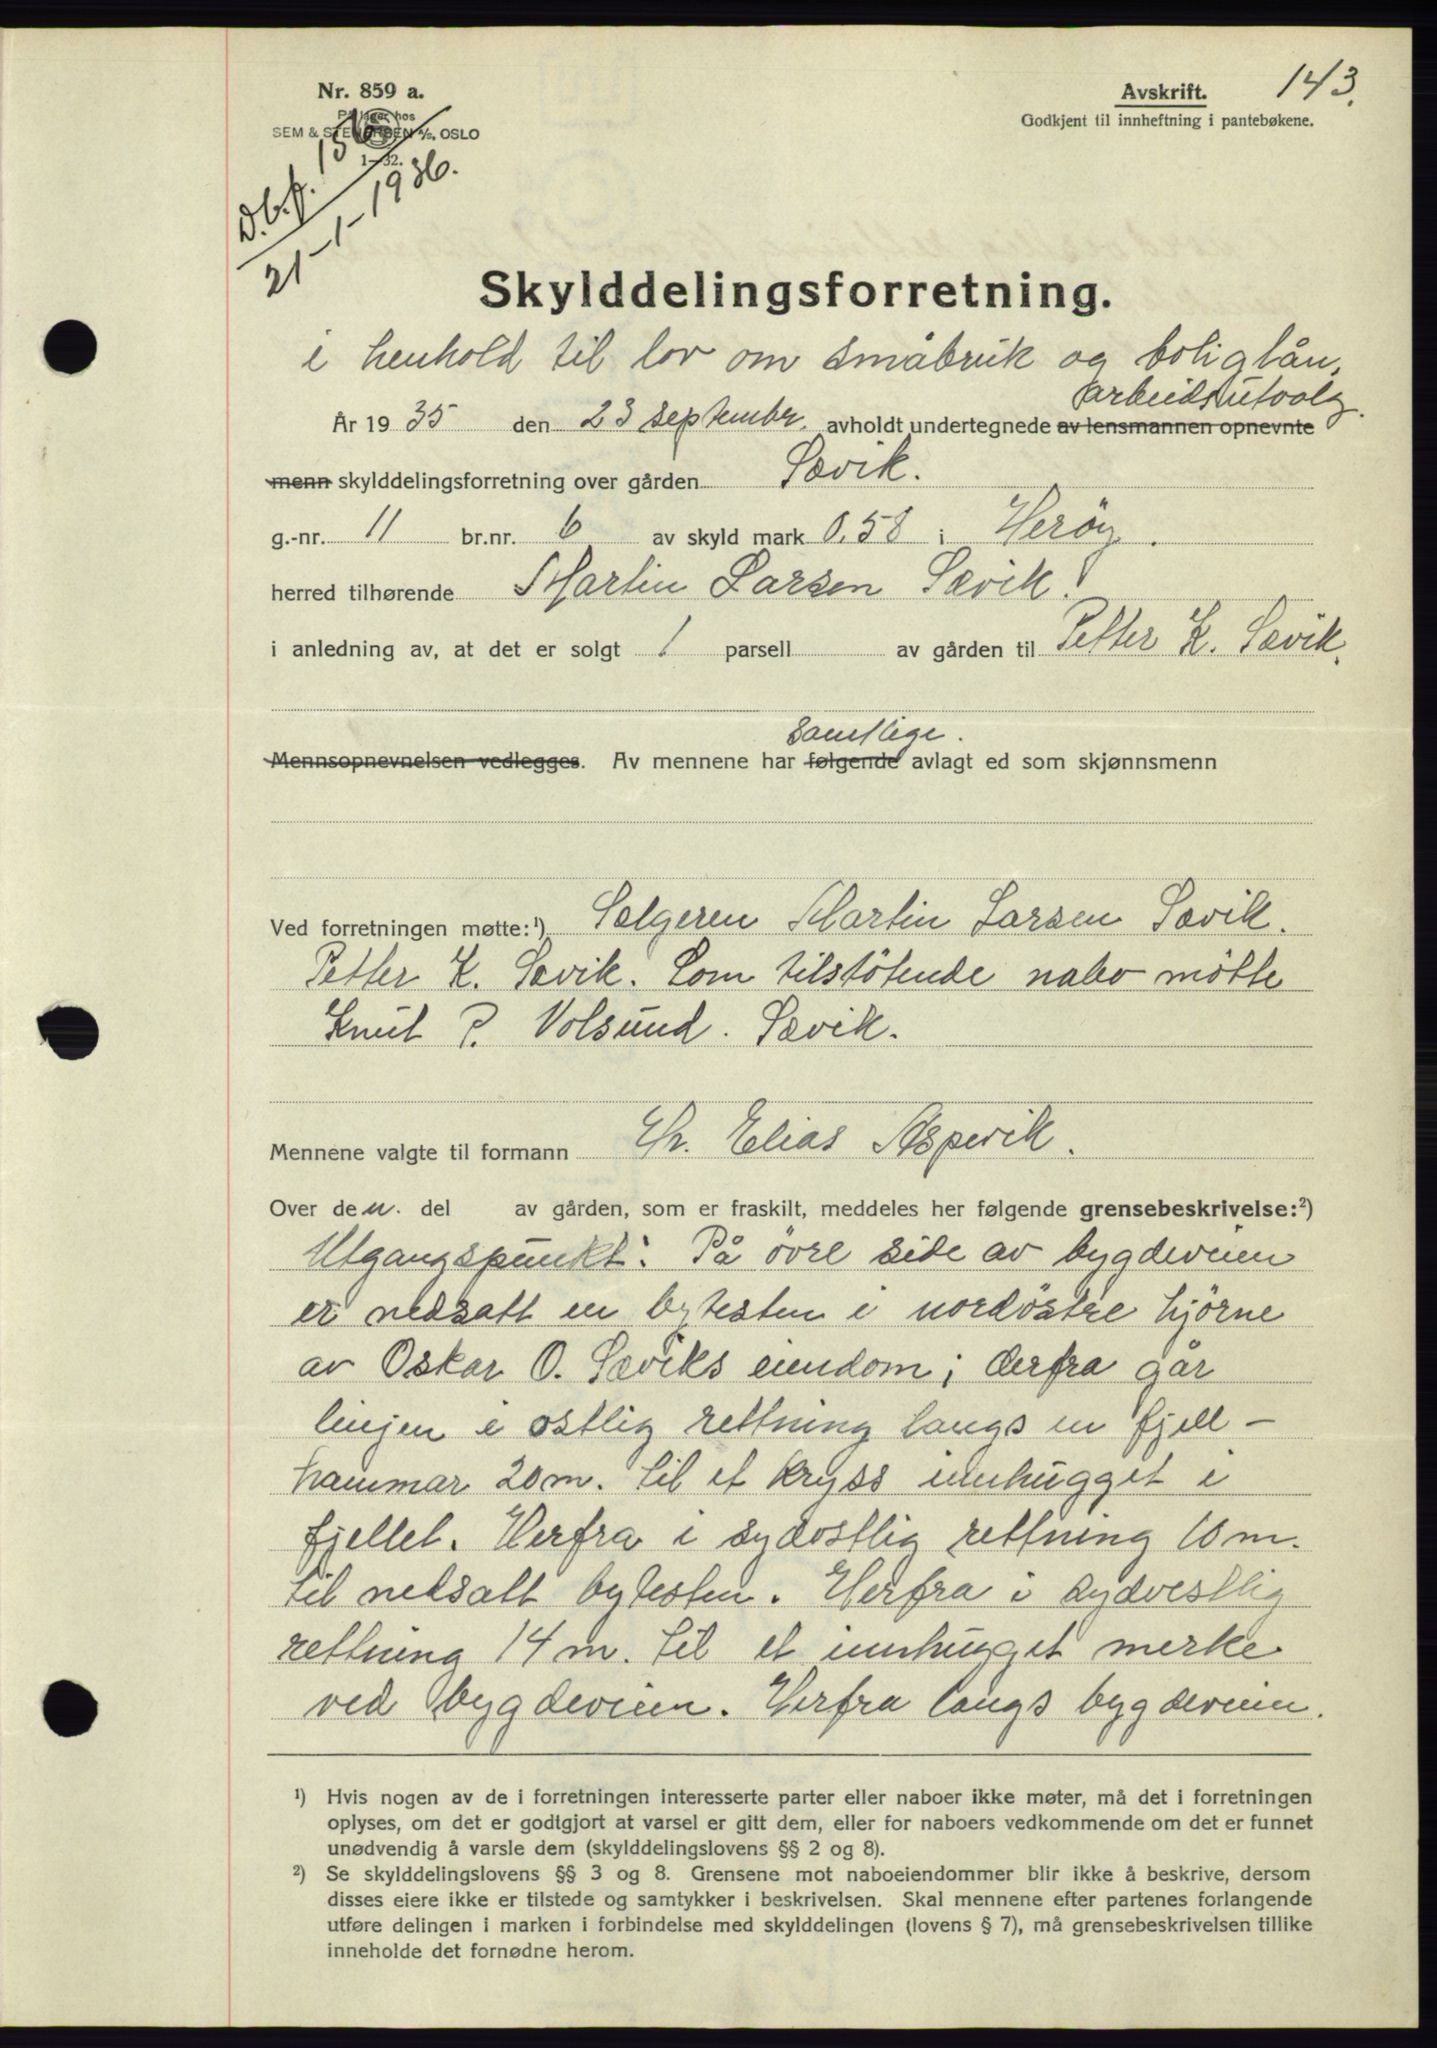 143.
Nr. 859 a.
På lager hos
SEM & STENERSEN A/S, OSLO
1—32.
Avskrift.
Godkjent til innheftning i pantebøkene.
D.b.f. 156
21-1-1936.
Skylddelingsforretning.
i henhold til lov om småbruk og boliglån,
arbeidsutvalg.
År 1935 den 23 september. avholdt undertegnede av lensmannen opnevnte
menn skylddelingsforretning over gården Sævik.
g.-nr. 11 br.nr. 6 av skyld mark 0,58 i Herøy.
herred tilhørende Martin Larsen Sævik.
i anledning av, at det er solgt 1 parsell av gården til Petter K. Sævik.
samtlige.
Mennsopnevnelsen vedlegges. Av mennene har følgende avlagt ed som skjønnsmenn
Ved forretningen møtte:¹) Selgeren Martin Larsen Sævik.
Petter K. Sævik. Som tilstötende nabo mötte
Knut P. Volsund. Sævik.
Mennene valgte til formann Hr. Elias Aspevik.
Over den. del av gården, som er fraskilt, meddeles her følgende grensebeskrivelse:²)
Utgangspunkt: På övre side av bygdeveien
er nedsatt en bytesten i nordöstre hjörne
av Oskar O. Sæviks eiendom; derfra går
linjen i ostlig rettning langs en fjell-
hammar 20 m. til et kryss innhugget i
fjellet. Herfra i sydostlig rettning 10 m.
til nedsatt bytesten. Herfra i sydvestlig
rettning 14 m. til et innhugget merke
ved bygdeveien. Herfra langs bygdeveien.
¹) Hvis nogen av de i forretningen interesserte parter eller naboer ikke møter, må det i forretningen
oplyses, om det er godtgjort at varsel er gitt dem, eller for naboers vedkommende om det er funnet
unødvendig å varsle dem (skylddelingslovens §§ 2 og 8).
²) Se skylddelingslovens §§ 3 og 8. Grensene mot naboeiendommer blir ikke å beskrive, dersom
disses eiere ikke er tilstede og samtykker i beskrivelsen. Skal mennene efter partenes forlangende
utføre delingen i marken i forbindelse med skylddelingen (lovens § 7), må grensebeskrivelsen tillike
inneholde det fornødne herom.